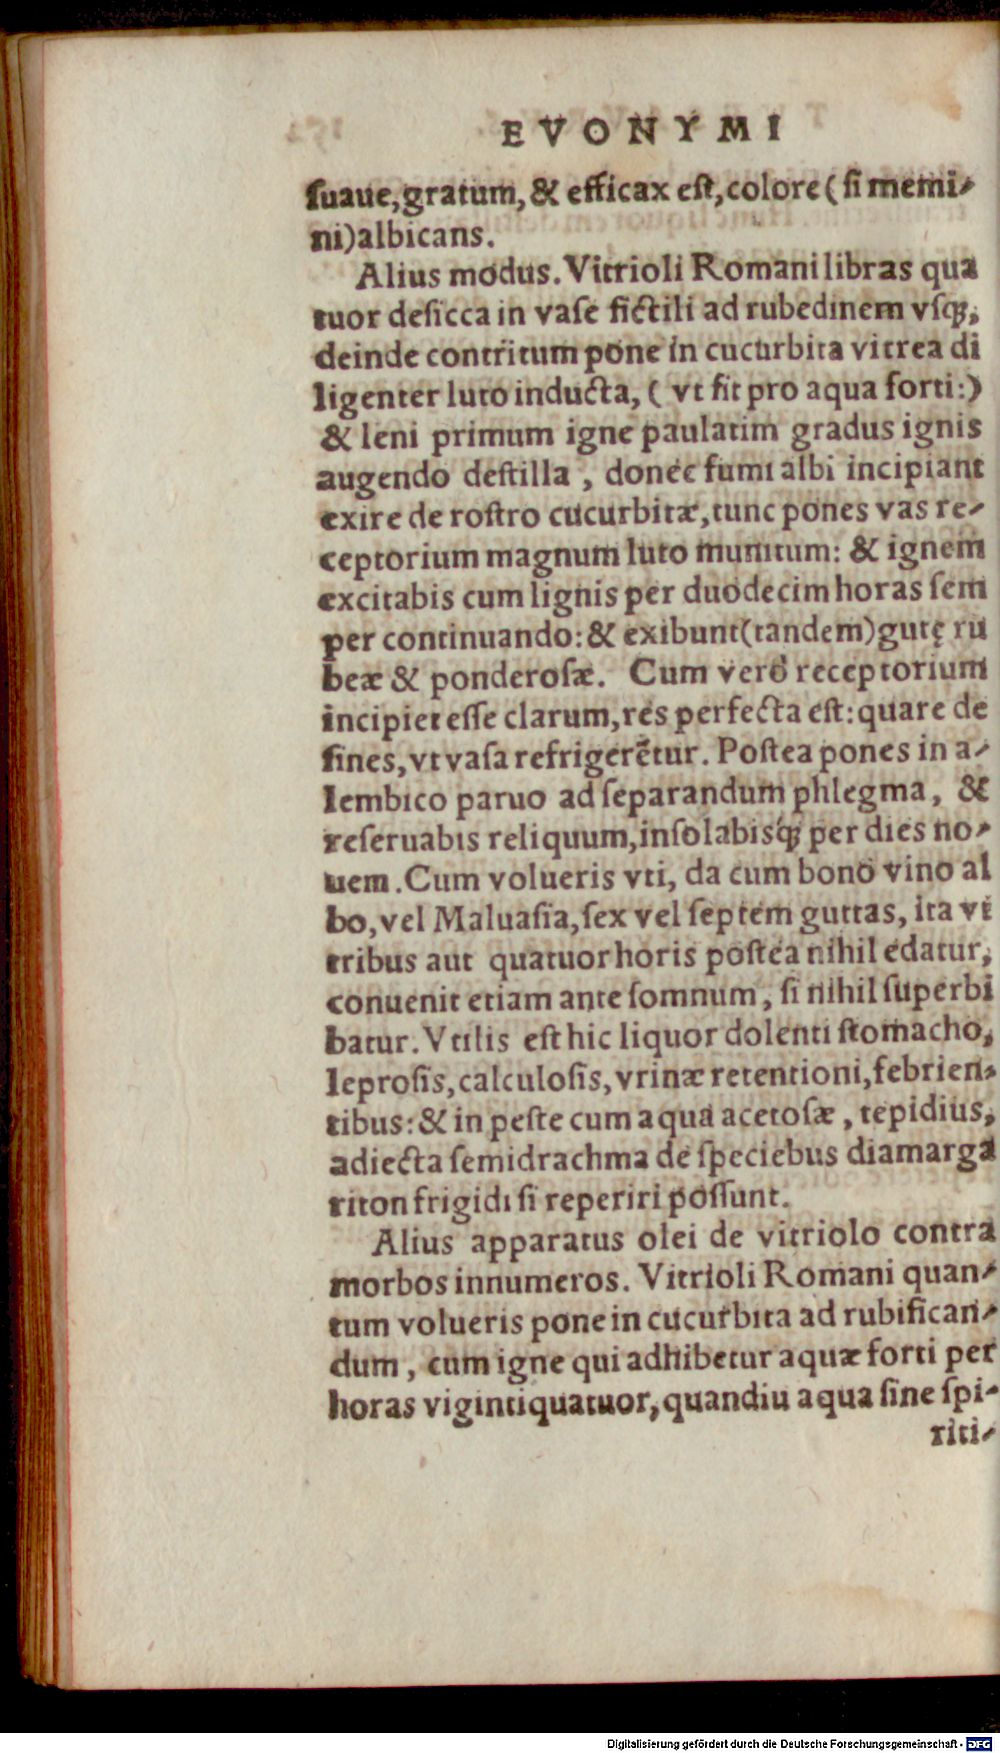 EVONYMI
ſuaue, gratum, & efficax eſt, colore (ſi memi-
ni) albicans.
Alius modus. Vitrioli Romani libras qua
tuor deſicca in vaſe fictili ad rubedinem vſq;,
deinde contritum pone in cucurbita vitrea di
ligenter luto inducta, (vt fit pro aqua forti:)
& leni primum igne paulatim gradus ignis
augendo deſtilla, donec fumi albi incipiant
exire de roſtro cucurbitæ, tunc pones vas re-
ceptorium magnum luto munitum: & ignem
excitabis cum lignis per duodecim horas ſem
per continuando: & exibunt (tandem) gutę ru
beæ & ponderoſæ. Cum verò receptorium
incipiet eſſe clarum, res perfecta eſt: quare de
ſines, vt vaſa refrigerētur. Poſtea pones in a-
lembico paruo ad ſeparandum phlegma, &
reſeruabis reliquum, inſolabisq́; per dies no-
uem. Cum volueris vti, da cum bono vino al
bo, vel Maluaſia, ſex vel ſeptem guttas, ita vt
tribus aut quatuor horis poſtea nihil edatur,
conuenit etiam ante ſomnum, ſi nihil ſuperbi
batur. Vtilis eſt hic liquor dolenti ſtomacho,
leproſis, calculoſis, vrinæ retentioni, febrien-
tibus: & in peſte cum aqua acetoſæ, tepidius,
adiecta ſemidrachma de ſpeciebus diamarga
riton frigidi ſi reperiri poſſunt.
Alius apparatus olei de vitriolo contra
morbos innumeros. Vitrioli Romani quan-
tum volueris pone in cucurbita ad rubifican-
dum, cum igne qui adhibetur aquæ forti per
horas vigintiquatuor, quandiu aqua ſine ſpi-
riti-
Digitalisierung gefördert durch die Deutsche Forschungsgemeinschaft - DFG